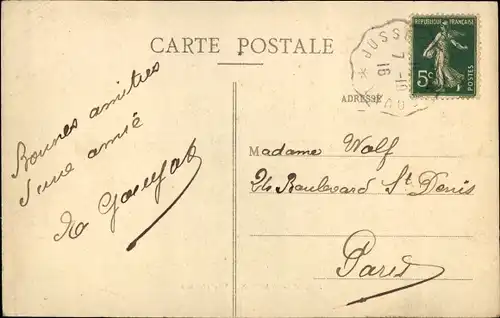 CARTE POSTALE
RÉPUBLIQUE FRANÇAISE
5c
POSTES
JUSS
7
16
ADRESSE
Bonnes amitiés
d'une amie
Madame Wolf
24 Boulevard St Denis
Paris